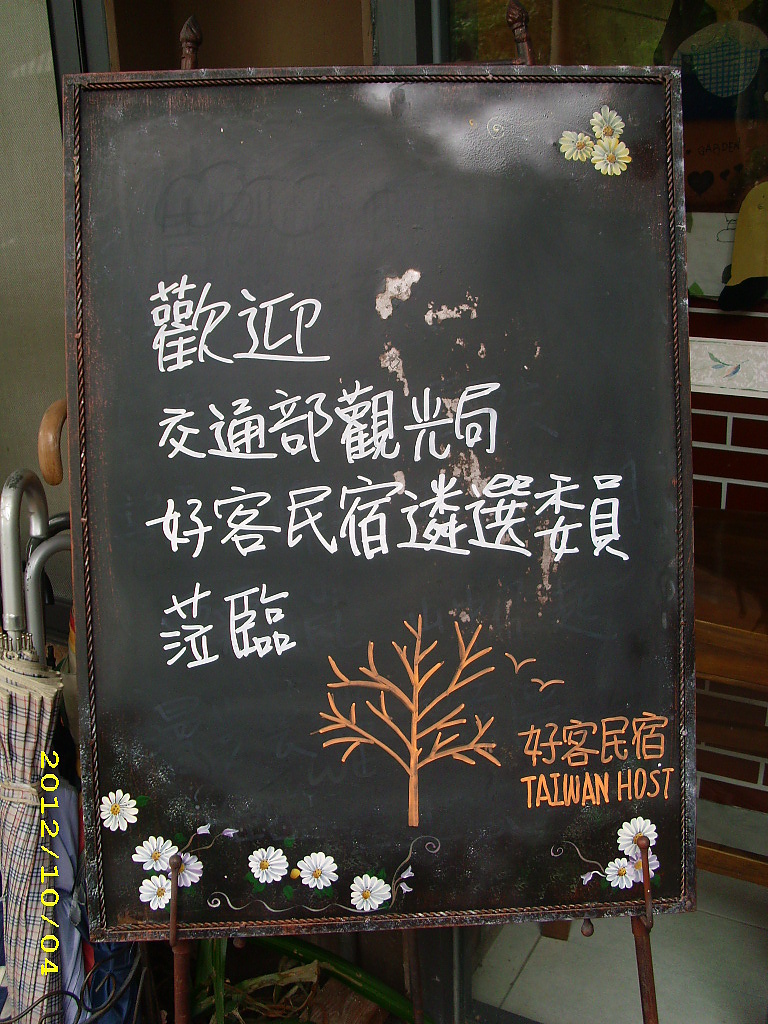 歡迎
交通部觀光局
好客民宿遴選委員
蒞臨
好客民宿
TAIWAN HOST
GARDEN
2012/10/04